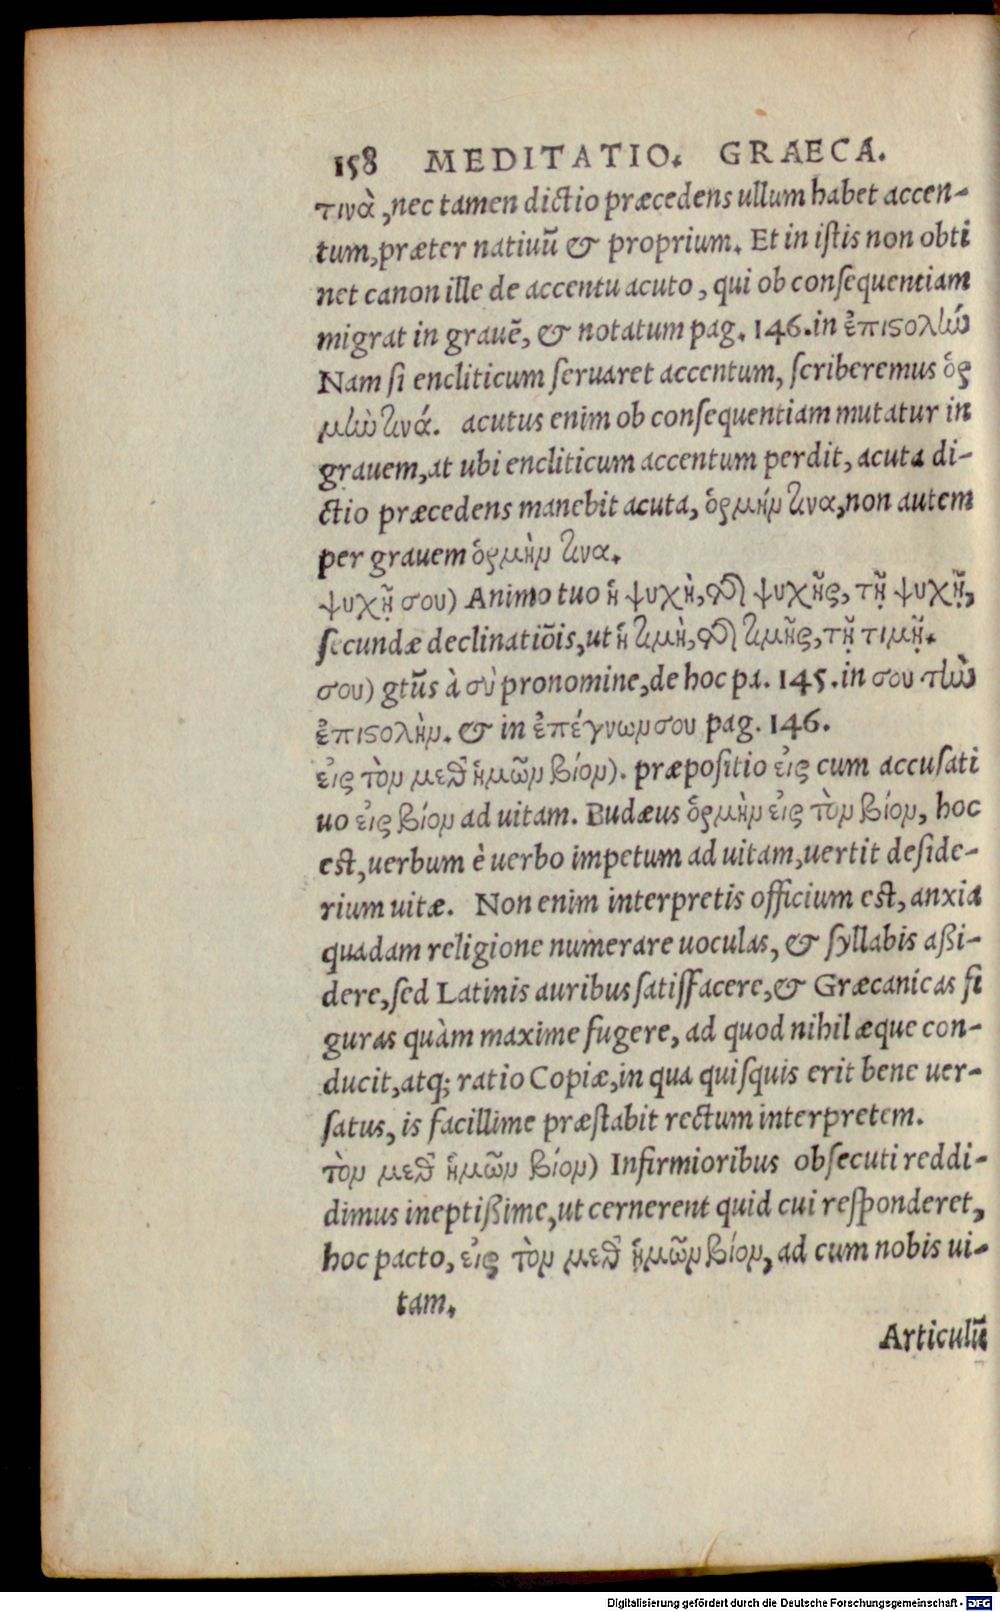 158 MEDITATIO. GRAECA.
τινὰ, nec tamen dictio præcedens ullum habet accen-
tum, præter natiuũ & proprium. Et in istis non obti
net canon ille de accentu acuto, qui ob consequentiam
migrat in grauẽ, & notatum pag. 146. in ἐπιϛολὼ
Nam si encliticum seruaret accentum, scriberemus ὁρ
μὼ τινά. acutus enim ob consequentiam mutatur in
grauem, at ubi encliticum accentum perdit, acuta di-
ctio præcedens manebit acuta, ὁρμήν τινα, non autem
per grauem ὁρμὴν τινα.
ψυχῇ σου) Animo tuo ἡ ψυχὴ, τῆς ψυχῆς, τῇ ψυχῇ,
secundæ declinatiõis, ut ἡ τιμὴ, τῆς τιμῆς, τῇ τιμῇ.
σου) gtũs à σὺ pronomine, de hoc pa. 145. in σου τὼ
ἐπιϛολὴν. & in ἐπέγνων σου pag. 146.
εἰς τὸν μεθ' ἡμῶν βίον). præpositio εἰς cum accusati
uo εἰς βίον ad uitam. Budæus ὁρμὴν εἰς τὸν βίον, hoc
est, uerbum è uerbo impetum ad uitam, uertit deside-
rium uitæ. Non enim interpretis officium est, anxia
quadam religione numerare uoculas, & syllabis aßi-
dere, sed Latinis auribus satisfacere, & Græcanicas fi
guras quàm maxime fugere, ad quod nihil æque con-
ducit, atq; ratio Copiæ, in qua quisquis erit bene uer-
satus, is facillime præstabit rectum interpretem.
τὸν μεθ' ἡμῶν βίον) Infirmioribus obsecuti reddi-
dimus ineptißime, ut cernerent quid cui responderet,
hoc pacto, εἰς τὸν μεθ' ἡμῶν βίον, ad cum nobis ui-
tam.
Articulũ
Digitalisierung gefördert durch die Deutsche Forschungsgemeinschaft - DFG